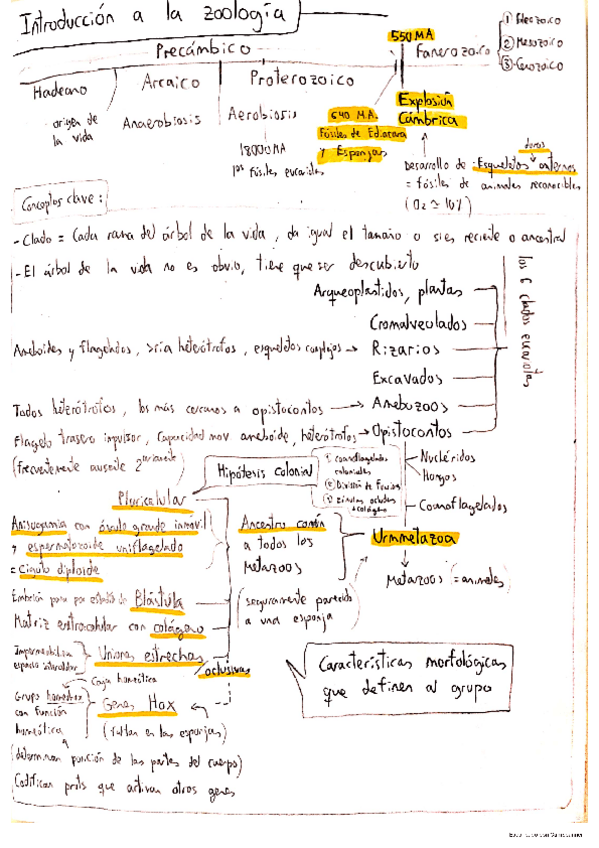 Introducción a la zoología
Precámbico
550 MA
Fanerozoico
① Paleozoico
② Mesozoico
③ Cenozoico
Hadeano
Arcaico
Proterozoico
origen de
la vida
Anaerobiosis
Aerobiosis
1800 MA
1os fósiles eucariotas
640 MA.
Fósiles de Ediacara
y Esponjas
Explosión
Cámbrica
duros
Desarrollo de Esqueletos externos
= fósiles de animales reconocibles
(O2 ≃ 10%)
Conceptos clave:
- Clado = Cada rama del árbol de la vida, da igual el tamaño o si es reciente o ancestral
- El árbol de la vida no es obvio, tiene que ser descubierto
los 6 clados eucariotas
Arqueoplastidos, plantas
Cromalveolados
Ameboides y flagelados, >ría heterótrofos, esqueletos complejos → Rizarios
Excavados
Todos heterótrofos, los más cercanos a opistocontos → Amebozoos
Flagelo trasero impulsor, capacidad mov ameboide, heterótrofos → Opistocontos
(frecuentemente ausente 2
Hipótesis colonial
① coanoflagelados
coloniales
② División de funciones
Nucléridos
Hongos
Coanoflagelados
Pluricelular
Anisogamia con óvulo grande inmóvil
y espermatozoide uniflagelado
= Cigoto diploide
Embrión pasa por estadio de Blástula
Matriz extracelular con colágeno
Impermeabilizan
espacio intercelular
Uniones estrechas
/oclusivas
Ancestro común
a todos los
Metazoos
Urmmetazoa
(seguramente parecido
a una esponja
Metazoos (= animales)
Caja homeótica
Grupo homeobox
con función
homeótica
Genes Hox
(faltan en las esponjas)
(determinan posición de las partes del cuerpo)
Codifican prots que activan otros genes
Características morfológicas
que definen al grupo